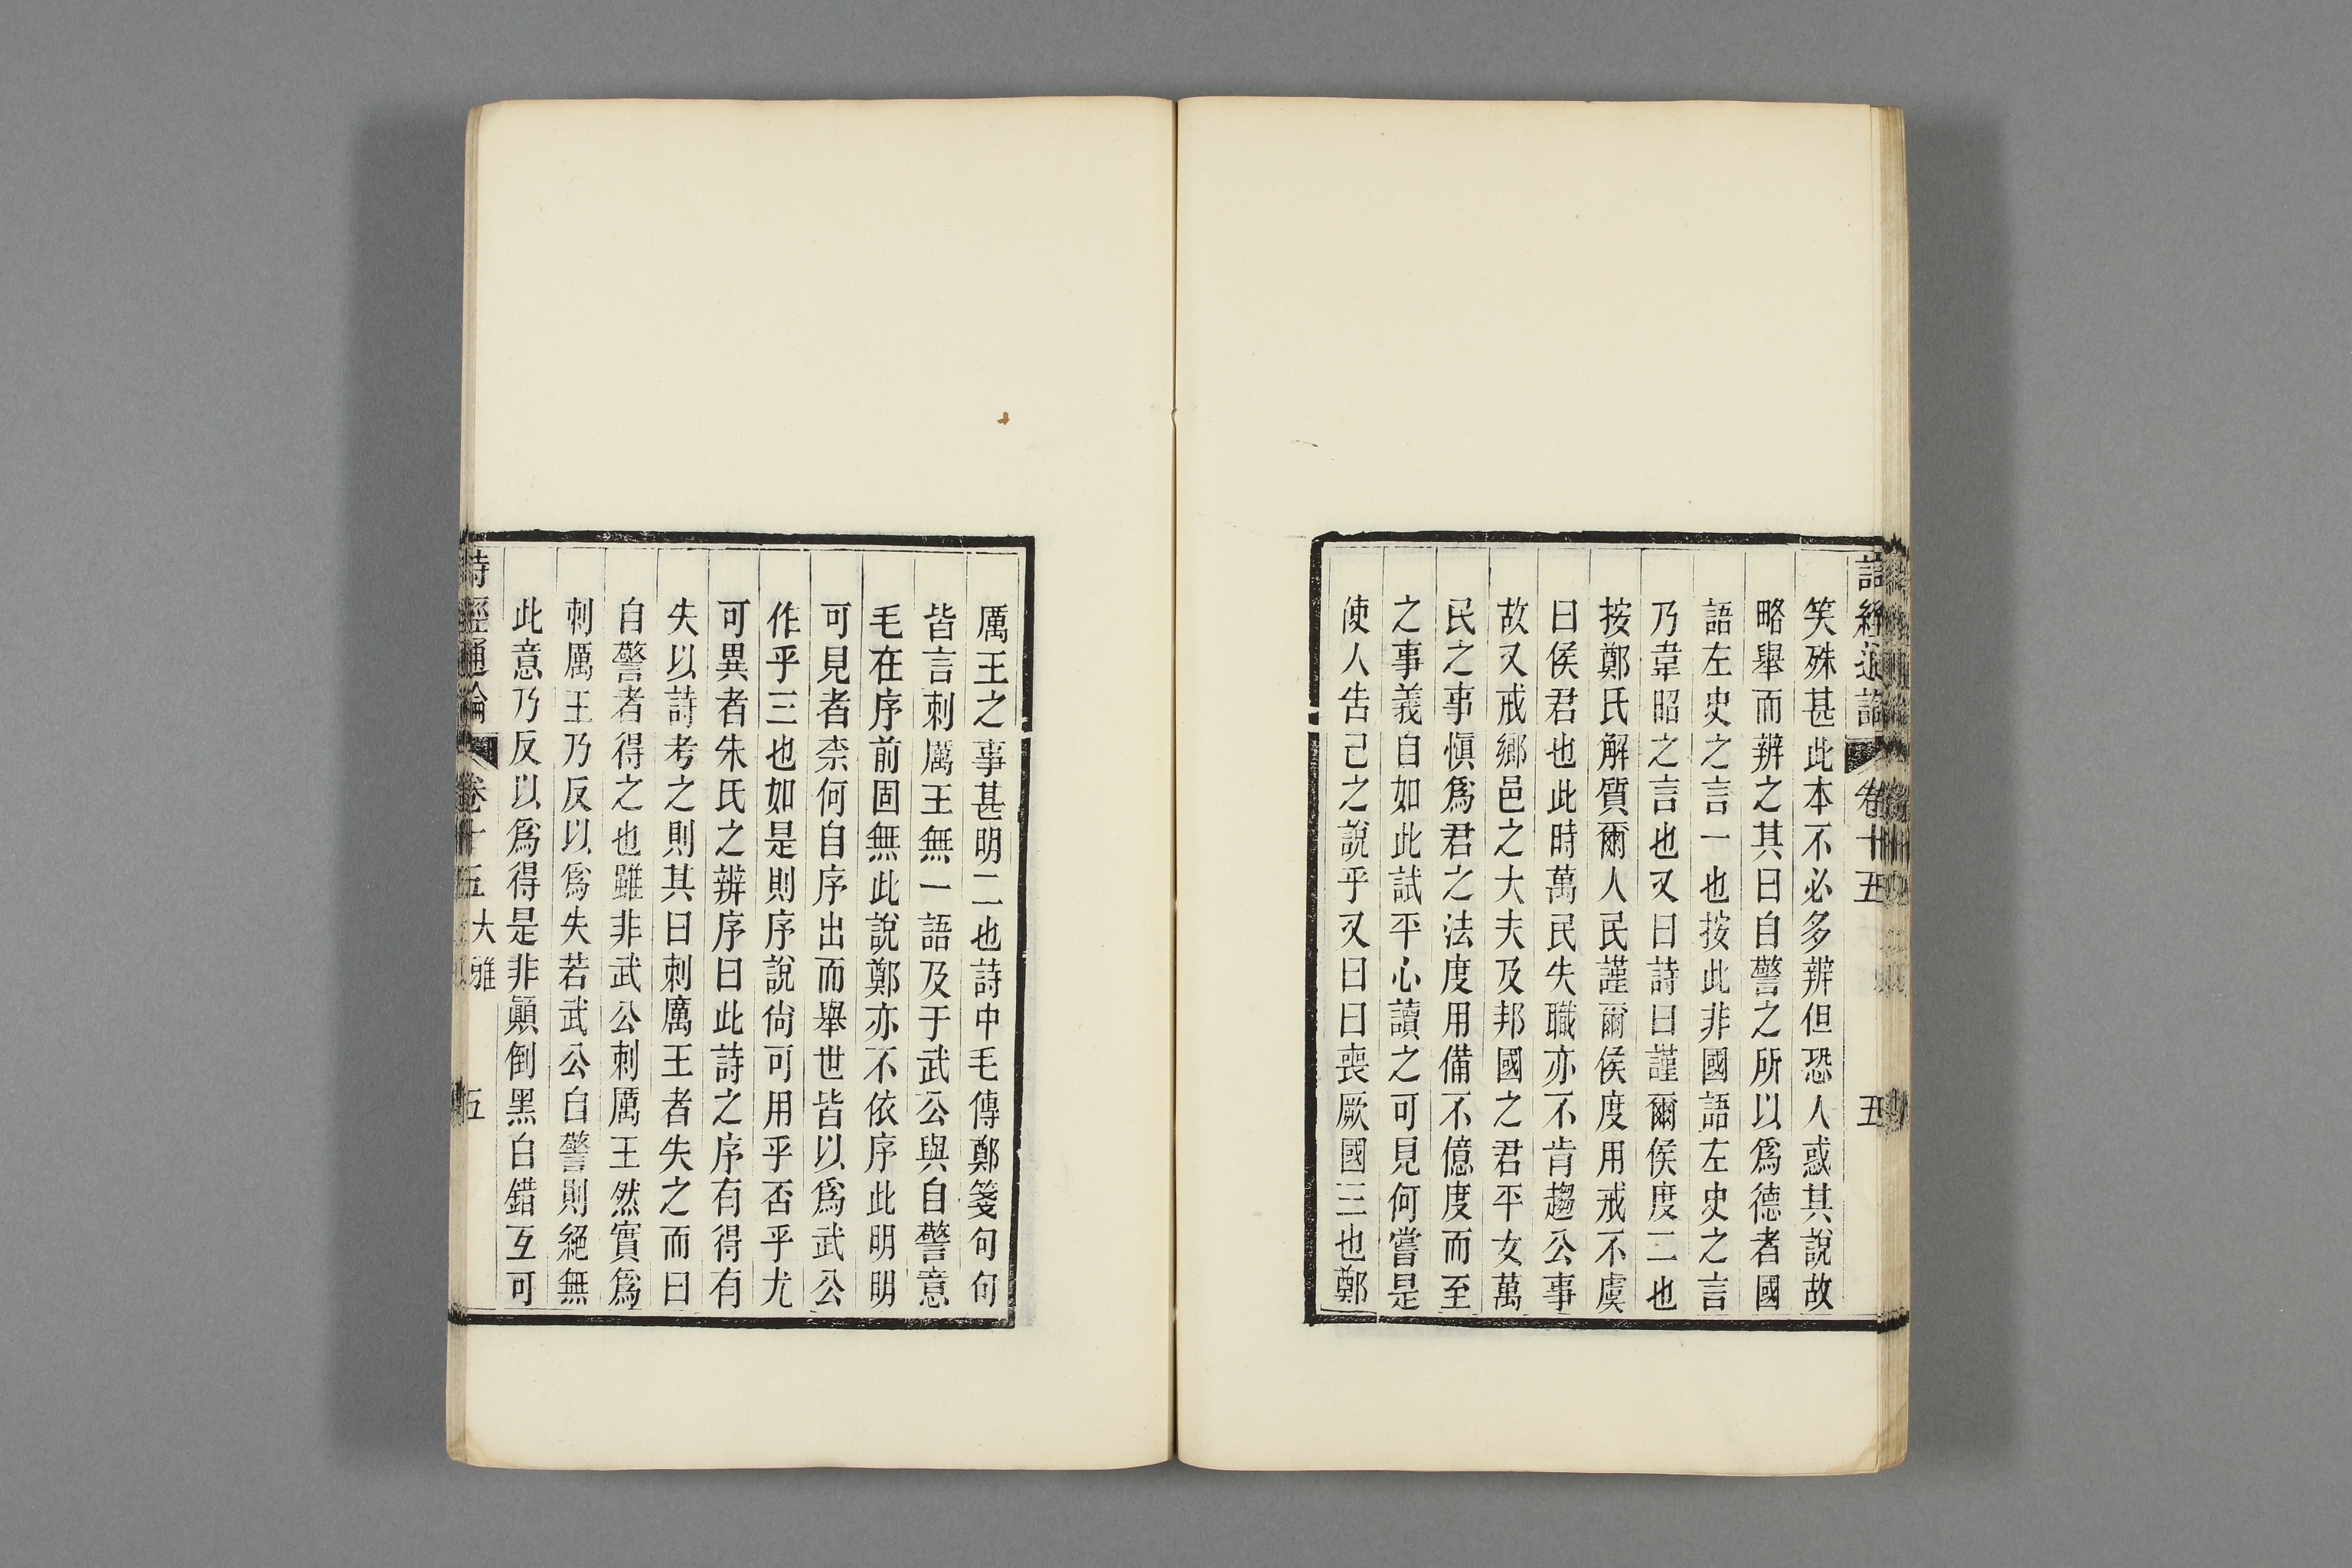 詩經通論 卷十五 五
笑殊甚此本不必多辨但恐人惑其說故
略舉而辨之其曰自警之所以爲德者國
語左史之言一也按此非國語左史之言
乃韋昭之言也又曰詩曰謹爾侯度二也
按鄭氏解質爾人民謹爾侯度用戒不虞
曰侯君也此時萬民失職亦不肯趨公事
故又戒鄉邑之大夫及邦國之君平女萬
民之事愼爲君之法度用備不億度而至
之事義自如此試平心讀之可見何嘗是
使人告己之說乎又曰曰喪厥國三也鄭
厲王之事甚明二也詩中毛傳鄭箋句句
皆言刺厲王無一語及于武公與自警意
毛在序前固無此說鄭亦不依序此明明
可見者柰何自序出而舉世皆以爲武公
作乎三也如是則序說尙可用乎否乎尤
可異者朱氏之辨序曰此詩之序有得有
失以詩考之則其曰刺厲王者失之而曰
自警者得之也雖非武公刺厲王然實爲
刺厲王乃反以爲失若武公自警則絕無
此意乃反以爲得是非顚倒黑白錯互可
詩經通論 卷十五 大雅 五